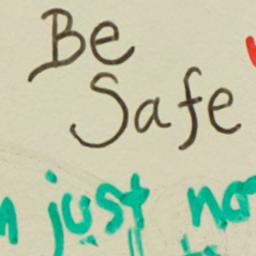 Be
Safe
just